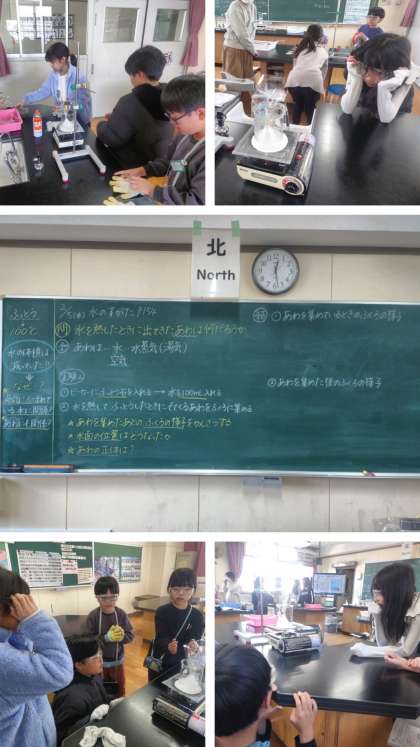 北
North
ふっとう
100℃
水の体積は
減っていた!!
なぜ?
2/5(水) 水のすがた P154
問 水を熱したときに出てきたあわは何だろうか
予 あわは… 水 水蒸気(湯気)
空気
実験2
①ビーカーにふっとう石を入れる → 水を100mL入れる
②水を熱してふっとうしたときにでてくるあわをふくろに集める
★あわを集めたあとのふくろの様子をかんさつする
★水面の位置はどうなったか
★あわの正体は?
結 ①あわを集めているときのふくろの様子
②あわを集めた後のふくろの様子